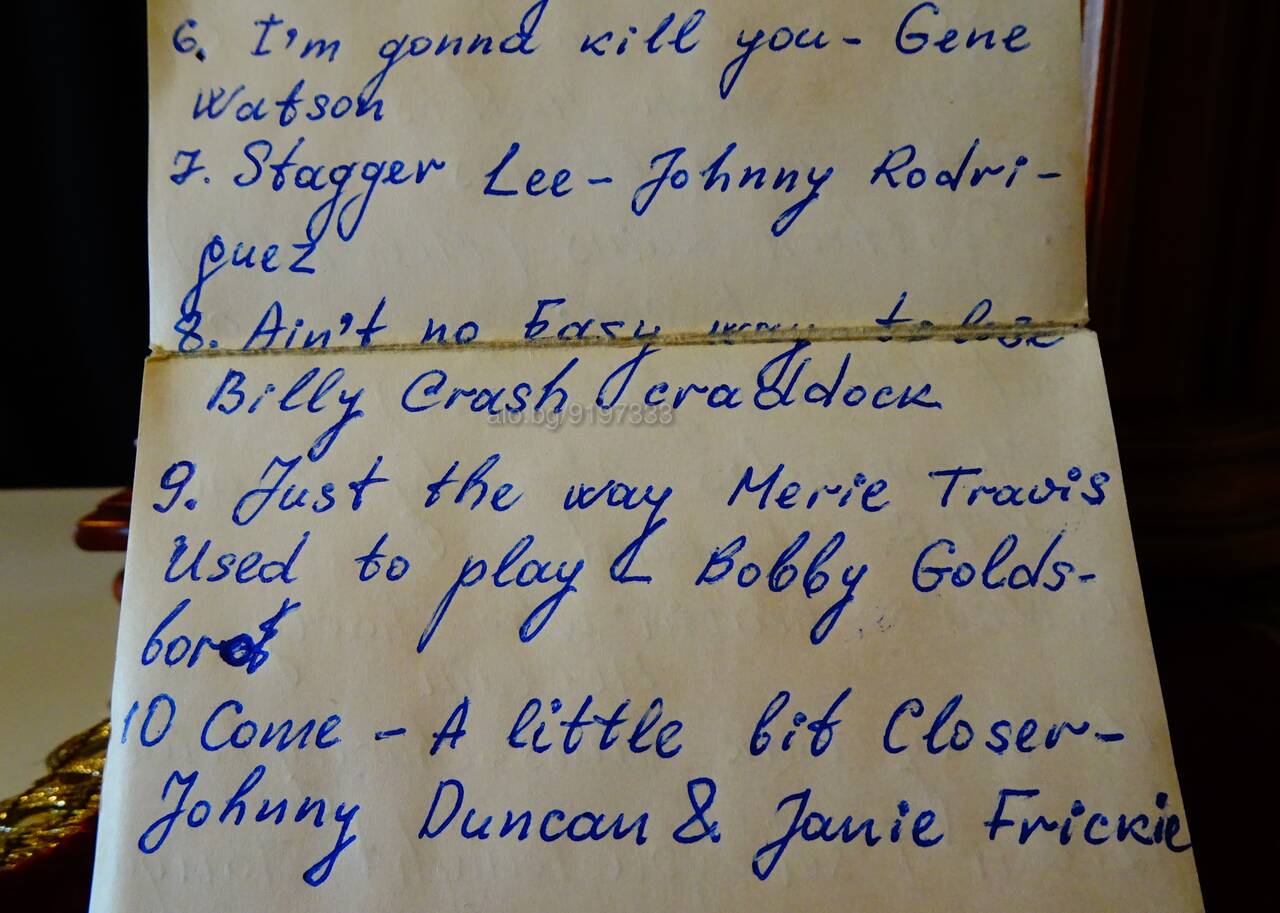 6. I'm gonna kill you - Gene
Watson
7. Stagger Lee - Johnny Rodri-
guez
8. Ain't no Easy way to lose
Billy Crash craddock
alo.bg/9197333
9. Just the way Merie Travis
Used to play - Bobby Golds-
boro
10 Come - A little bit Closer-
Johnny Duncan & Janie Frickie